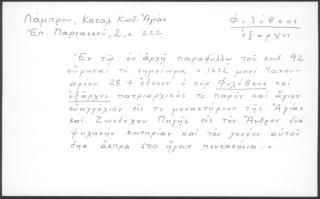 Λάμπρου, Καταλ. Κωδ. Ἁγίας
Φιλόθεος
ἔξαρχος
Ἐν τῷ ἐν ἀρχῇ παραφύλλῳ τοῦ κωδ. 92
εὕρηται τὸ σημείωμα «1632 μηνὶ Ἰανου-
αρίου 28 + ἔδοσεν ὁ κὺρ Φιλόθεος καὶ
ἔξαρχος πατριαρχικὸς τὸ παρὸν καὶ ἅγιον
εὐαγγέλιον εἰς τὸ μοναστύριον τῆς Ἁγίας
καὶ Ζωοδόχου Πηγῆς εἰς τὴν Ἄνδρον διὰ
ψυχικὴν σωτηρίαν καὶ τῶν γονέον αὐτοῦ
διὰ ἄσπρα 500 ἤγουν πεντακόσια.»